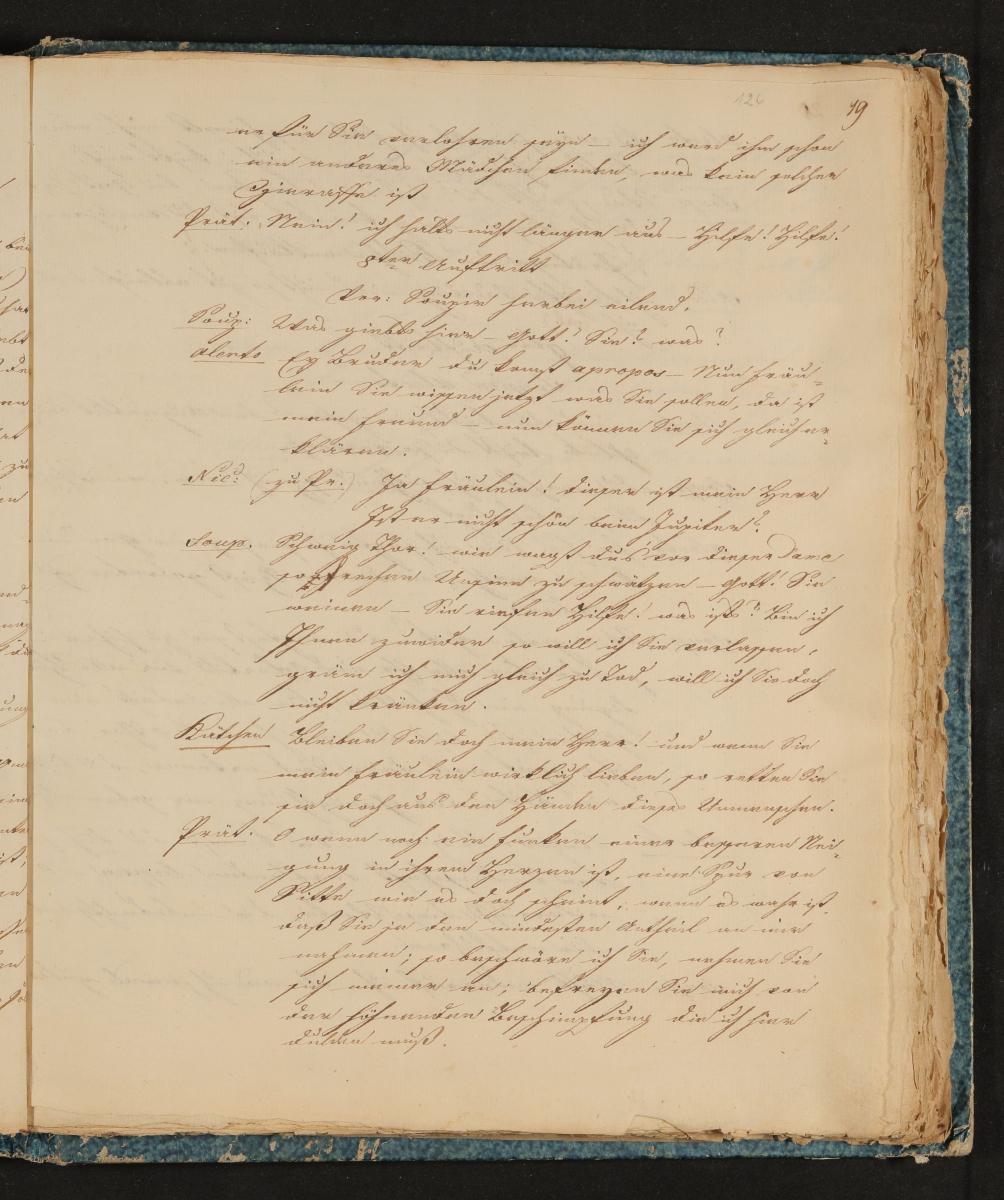 126
19
er für Sie verlohren seyn – ich werd ihm schon
ein anderes Mädchen finden, was kein solcher
Zieraffe ist
Prät: Nein! ich halts nicht länger aus – Hilfe! Hilfe!
8ter Auftritt
Vor: Soupir herbei eilend.
Soup: Was giebts hier – Gott! Sie? was?
Alento Ey Bruder du komst apropos – Nun Fräu-
lein Sie wissen jetzt was Sie sollen, da ist
mein Freund – nun können Sie sich gleich er-
klären.
Nic: (zu Pr.) Ja Fräulein! dieser ist mein Herr
Ist er nicht schön beim Jupiter?
Soup. Schweig Thor! wie wagst du's vor dieser Dame
so frechen Unsinn zu schwätzen – Gott! Sie
weinen – Sie riefen Hilfe! was ists? Bin ich
Ihnen zuwider so will ich Sie verlassen,
gräm ich mich gleich zu Tod, will ich Sie doch
nicht kränken.
Kätchen Bleiben Sie doch mein Herr! und wenn Sie
mein Fräulein wirklich lieben, so retten Sie
sie doch aus den Händen dieses Unmenschen.
Prät. O wenn noch ein Funken einer besseren Nei-
gung in ihrem Herzen ist, eine Spur von
Sitte wie es doch scheint, wenn es wahr ist,
daß Sie je den mindesten Antheil an mir
nahmen; so beschwöre ich Sie, nehmen Sie
sich meiner an; befreyen Sie mich von
der höhnenden Beschimpfung die ich hier
dulden muß.